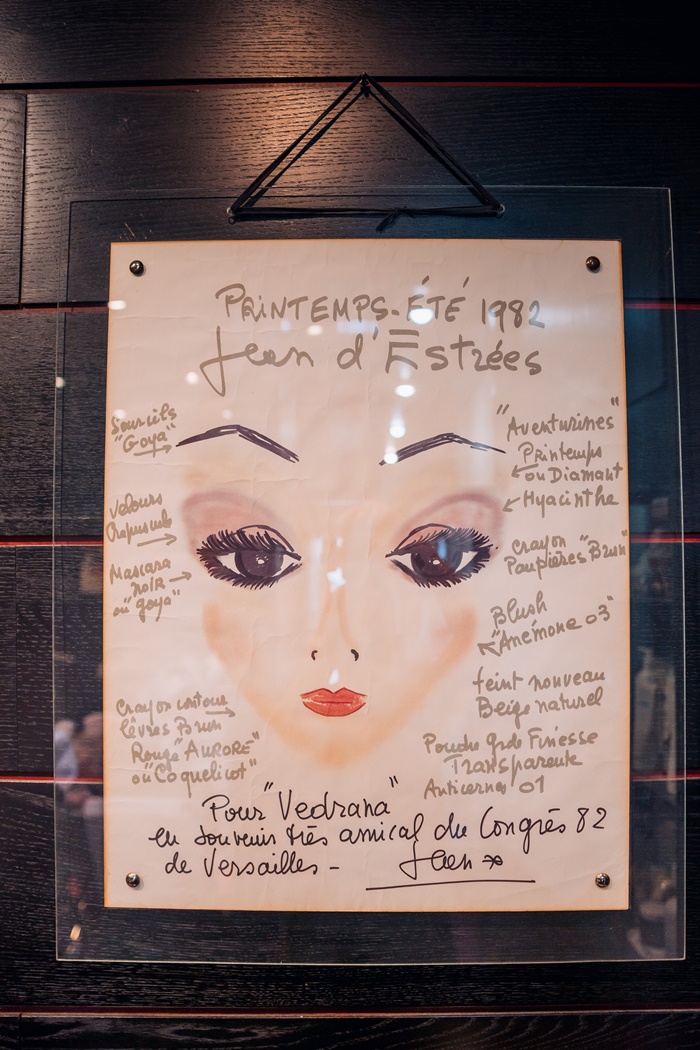 PRINTEMPS-ÉTÉ 1982
Jean d'Estrées
Sourcils
"Goya"
Velours
Crépuscule
Mascara
noir
ou "goya"
Crayon contour
lèvres Brun
Rouge "AURORE"
ou "Coquelicot"
"Aventurines"
Printemps
ou Diamant
Hyacinthe
Crayon
Paupières "Brun"
Blush
"Anémone 03"
teint nouveau
Beige naturel
Poudre gde Finesse
Transparente
Anticernes 01
Pour "Vedrana"
en souvenir très amical du Congrès 82
de Versailles - Jean